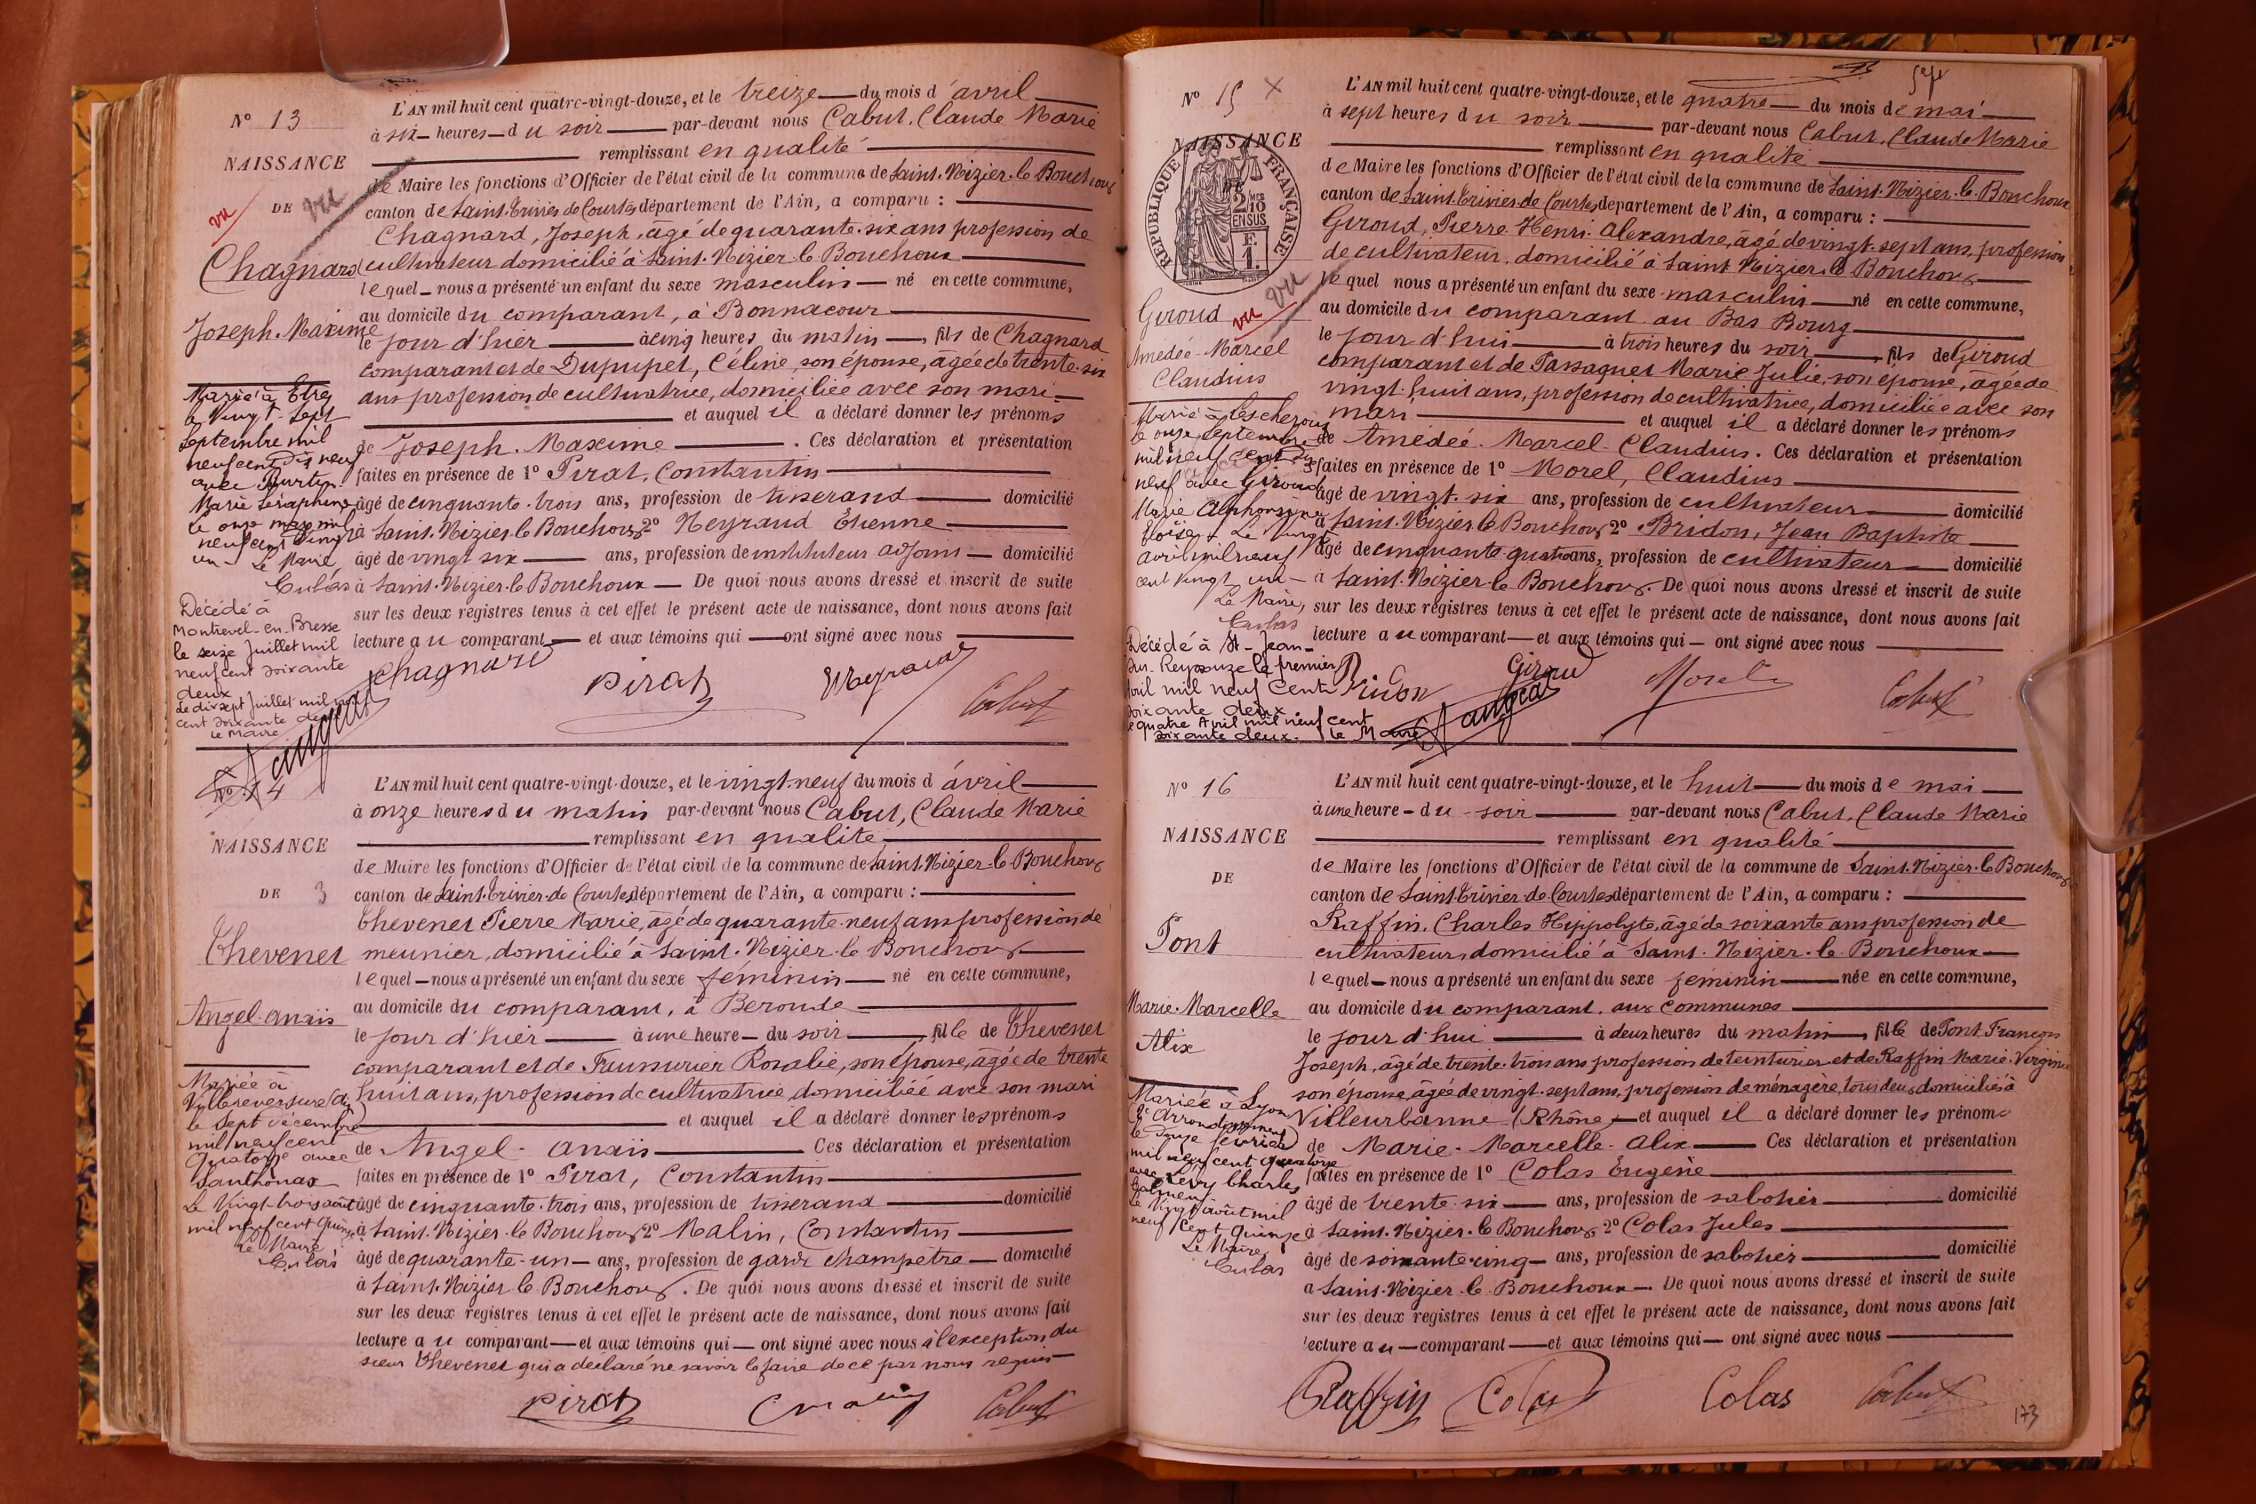 N° 13
NAISSANCE
DE
vu
vu
Chagnard
Joseph-Maxime
Marié à Etrez
le Vingt-Sept
Septembre mil
neuf cent dix neuf
avec
Marie Séraphine
le onze mars mil
neuf cent vingt
un - Le Maire,
Culas
Décédé à
Montrevel-en-Bresse
le seize Juillet mil
neuf cent soixante
deux
Le dix sept Juillet mil neuf
cent soixante deux
Le Maire
L'AN mil huit cent quatre-vingt-douze, et le treize du mois d'avril
à six heures du soir par-devant nous Cabut, Claude Marie
remplissant en qualité
de Maire les fonctions d'Officier de l'état civil de la commune de Saint-Nizier-le-Bouchoux
canton de Saint-Trivier-de-Courtes département de l'Ain, a comparu :
Chagnard, Joseph, âgé de quarante-six ans profession de
cultivateur domicilié à Saint-Nizier-le-Bouchoux
lequel nous a présenté un enfant du sexe masculin né en cette commune,
au domicile du comparant, à Bonnacour
le jour d'hier à cinq heures du matin, fils de Chagnard
comparant et de Dupupet, Céline, son épouse, âgée de trente-six
ans profession de cultivatrice, domiciliée avec son mari
et auquel il a déclaré donner les prénoms
de Joseph-Maxime. Ces déclaration et présentation
faites en présence de 1° Pirat, Constantin
âgé de cinquante-trois ans, profession de tisserand domicilié
à Saint-Nizier-le-Bouchoux 2° Neyraud Étienne
âgé de vingt six ans, profession de instituteur adjoint domicilié
à Saint-Nizier-le-Bouchoux De quoi nous avons dressé et inscrit de suite
sur les deux registres tenus à cet effet le présent acte de naissance, dont nous avons fait
lecture au comparant et aux témoins qui ont signé avec nous
Chagnard Pirat Neyraud Cabut
N° 14
NAISSANCE
DE 3
Thevenet
Angel-Anaïs
Mariée à
Villereversure (Ain)
le Sept décembre
mil neuf cent
quatorze avec
Santhonax
Le Vingt-trois août
mil neuf cent quinze
Le Maire
Culas
L'AN mil huit cent quatre-vingt-douze, et le vingt-neuf du mois d'avril
à onze heures du matin par-devant nous Cabut, Claude Marie
remplissant en qualité
de Maire les fonctions d'Officier de l'état civil de la commune de Saint-Nizier-le-Bouchoux
canton de Saint-Trivier-de-Courtes département de l'Ain, a comparu :
Thevenet Pierre Marie, âgé de quarante-neuf ans profession de
meunier, domicilié à Saint-Nizier-le-Bouchoux
lequel nous a présenté un enfant du sexe féminin né en cette commune,
au domicile du comparant, à Beronde
le jour d'hier à une heure du soir, fille de Thevenet
comparant et de Faussurier Rosalie, son épouse, âgée de trente
huit ans, profession de cultivatrice, domiciliée avec son mari
et auquel il a déclaré donner les prénoms
de Angel-Anaïs Ces déclaration et présentation
faites en présence de 1° Pirat, Constantin
âgé de cinquante-trois ans, profession de tisserand domicilié
à Saint-Nizier-le-Bouchoux 2° Malin, Constantin
âgé de quarante-un ans, profession de garde champêtre domicilié
à Saint-Nizier-le-Bouchoux. De quoi nous avons dressé et inscrit de suite
sur les deux registres tenus à cet effet le présent acte de naissance, dont nous avons fait
lecture au comparant et aux témoins qui ont signé avec nous à l'exception du
sieur Thevenet qui a déclaré ne savoir le faire de ce par nous requis
Pirat Malin Cabut
N° 15
NAISSANCE
RÉPUBLIQUE FRANÇAISE
2/10 EN SUS
F. 1.
vu
vu
Giroud
Amédée-Marcel
Claudius
Marié à Lescheroux
le onze Septembre
mil neuf cent dix
neuf avec Giroud
Marie Alphonsine
Eloïse - Le Vingt
avril mil neuf
cent vingt un -
Le Maire,
Culas
Décédé à St-Jean-
sur-Reyssouze le premier
Avril mil neuf cent
soixante deux
le quatre Avril mil neuf cent
soixante deux. Le Maire
L'AN mil huit cent quatre-vingt-douze, et le quatre du mois de mai
à sept heures du soir par-devant nous Cabut, Claude Marie
remplissant en qualité
de Maire les fonctions d'Officier de l'état civil de la commune de Saint-Nizier-le-Bouchoux
canton de Saint-Trivier-de-Courtes département de l'Ain, a comparu :
Giroud, Pierre-Henri-Alexandre, âgé de vingt-sept ans, profession
de cultivateur, domicilié à Saint-Nizier-le-Bouchoux
lequel nous a présenté un enfant du sexe masculin né en cette commune,
au domicile du comparant au Bas Bourg
le jour d'hui à trois heures du soir, fils de Giroud
comparant et de Passaquet Marie Julie, son épouse, âgée de
vingt-huit ans, profession de cultivatrice, domiciliée avec son
mari et auquel il a déclaré donner les prénoms
de Amédée-Marcel-Claudius. Ces déclaration et présentation
faites en présence de 1° Morel, Claudius
âgé de vingt-six ans, profession de cultivateur domicilié
à Saint-Nizier-le-Bouchoux 2° Bridon, Jean Baptiste
âgé de cinquante-quatre ans, profession de cultivateur domicilié
à Saint-Nizier-le-Bouchoux. De quoi nous avons dressé et inscrit de suite
sur les deux registres tenus à cet effet le présent acte de naissance, dont nous avons fait
lecture au comparant et aux témoins qui ont signé avec nous
Bridon Giroud Morel Cabut
N° 16
NAISSANCE
DE
Pont
Marie-Marcelle
Alix
Mariée à Lyon
(2e Arrondissement)
le douze février
mil neuf cent quatorze
avec Lévy Charles
Le Vingt août mil
neuf cent quinze
Le Maire,
Culas
L'AN mil huit cent quatre-vingt-douze, et le huit du mois de mai
à une heure du soir par-devant nous Cabut, Claude Marie
remplissant en qualité
de Maire les fonctions d'Officier de l'état civil de la commune de Saint-Nizier-le-Bouchoux
canton de Saint-Trivier-de-Courtes département de l'Ain, a comparu :
Raffin, Charles Hippolyte, âgé de soixante ans profession de
cultivateur, domicilié à Saint-Nizier-le-Bouchoux
lequel nous a présenté un enfant du sexe féminin née en cette commune,
au domicile du comparant, aux Communes
le jour d'hui à deux heures du matin, fille de Pont François
Joseph, âgé de trente-trois ans profession de teinturier et de Raffin Marie-Virginie
son épouse, âgée de vingt-sept ans, profession de ménagère, tous deux domiciliés à
Villeurbanne (Rhône) et auquel il a déclaré donner les prénoms
de Marie-Marcelle-Alix Ces déclaration et présentation
faites en présence de 1° Colas Eugène
âgé de trente-six ans, profession de sabotier domicilié
à Saint-Nizier-le-Bouchoux 2° Colas Jules
âgé de soixante-cinq ans, profession de sabotier domicilié
à Saint-Nizier-le-Bouchoux De quoi nous avons dressé et inscrit de suite
sur les deux registres tenus à cet effet le présent acte de naissance, dont nous avons fait
lecture au comparant et aux témoins qui ont signé avec nous
Raffin Colas Colas Cabut
173